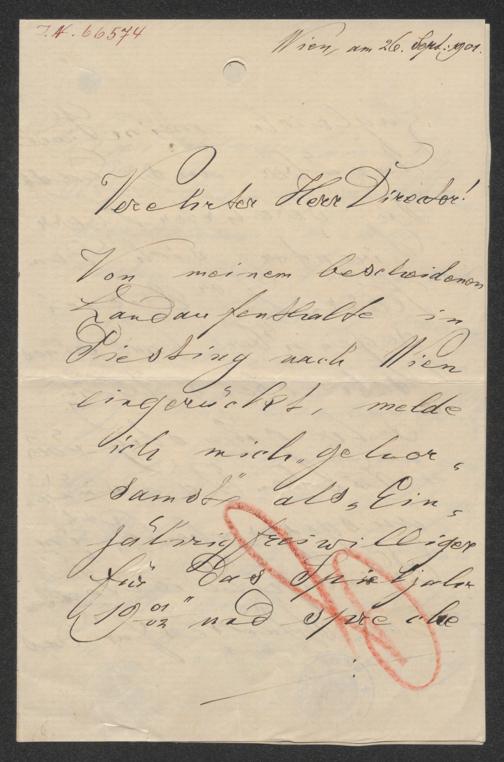 I.N. 66574
Wien, am 26. Sept. 1901.
Verehrter Herr Director!
Von meinem bescheidenen
Landaufenthalte in
Piesting nach Wien
eingerückt, melde
ich mich „gehor-
samst“ als „Ein-
jährigfreiwilliger
für das Spieljahr
19 01/02“ und spreche